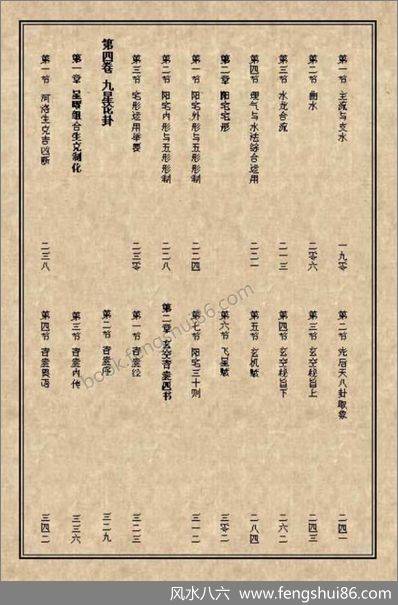 第一节 主流与支水 一九零
第二节 水 二零六
第三节 水龙合流 二一三
第四节 理气与水法综合运用 二二一
第二章 阳宅宅形
第一节 阳宅外形与五形形制 二二四
第二节 阳宅内形与五形形制 二二八
第三节 宅形运用举要 二三零
第四卷 九星论卦
第一章 星曜组合生克制化
第一节 河洛生克吉凶断 二三八
第二节 先后天八卦取象 二四一
第三节 玄空秘旨上 二四三
第四节 玄空秘旨下 二六二
第五节 玄机赋 二八四
第六节 飞星赋 三零二
第七节 阳宅三十则 三一二
第二章 玄空青囊四书
第一节 青囊经 三二三
第二节 青囊序 三二九
第三节 青囊内传 三三六
第四节 青囊奥语 三四二
book.fengshui86.com
风水八六 www.fengshui86.com